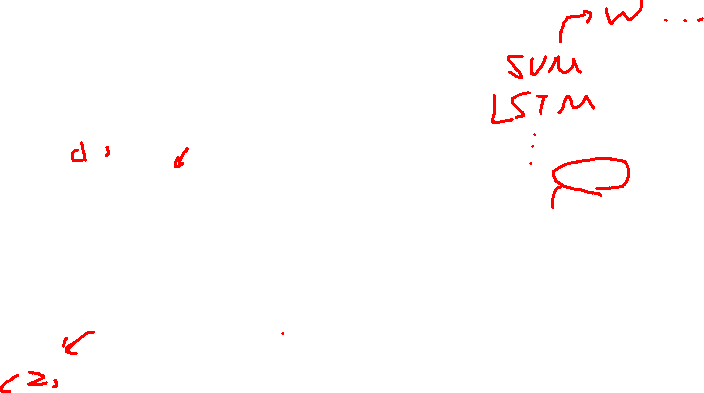 W ...
SVM
LSTM
d,
2,